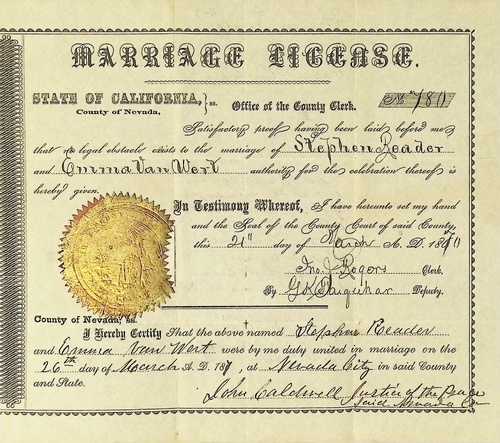 MARRIAGE LICENSE.
STATE OF CALIFORNIA, } ss. Office of the County Clerk. No.
County of Nevada,
Satisfactory proof having been laid before me
that no legal obstacle exists to the marriage of Stephen Reader
and Emma Van Wert authority for the celebration thereof is
hereby given.
In Testimony Whereof, I have hereunto set my hand
and the Seal of the County Court of said County,
this 21st day of March A. D. 18
Jno. J. Rogers Clerk.
By G.K. Farquhar Deputy.
County of Nevada, ss.
I Hereby Certify That the above named Stephen Reader
and Emma Van Wert were by me duly united in marriage on the
26th day of March A. D. 18 , at Nevada City in said County
and State.
John Caldwell Justice of the Peace
Said Nevada Co